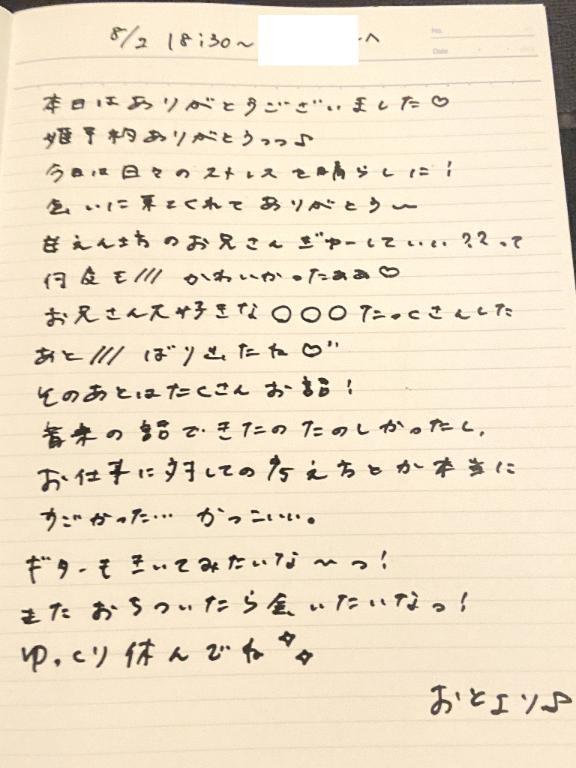 8/2 18:30~ へ
No.
Date
本日はありがとうございました♡
姫予約ありがとうっっ♪
今日は日々のストレスを晴らしに!
会いに来てくれてありがとう〜
甘えん坊のお兄さんぎゅーしていい??って
何度も/// かわいかったぁぁ♡
お兄さん大好きな〇〇〇たっくさんした
あと/// ばり出たね♡"
そのあとはたくさんお話!
音楽の話できたのたのしかったし、
お仕事に対しての考え方とか本当に
すごかった… かっこいい。
ギターもきいてみたいな〜っ!
またおちついたら会いたいなっ!
ゆっくり休んでね